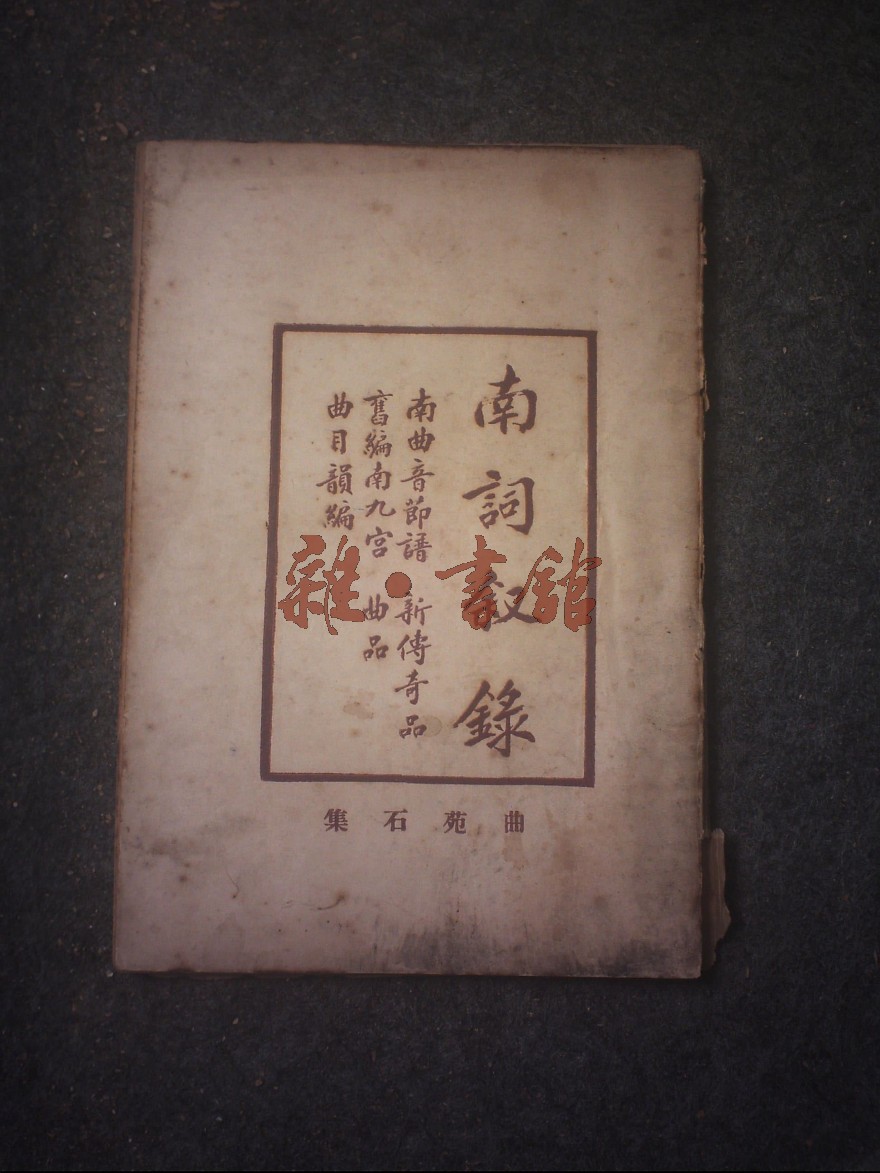 南詞敘錄
南曲音節譜 新傳奇品
舊編南九宮 曲品
曲目韻編
曲苑石集
雜·書館